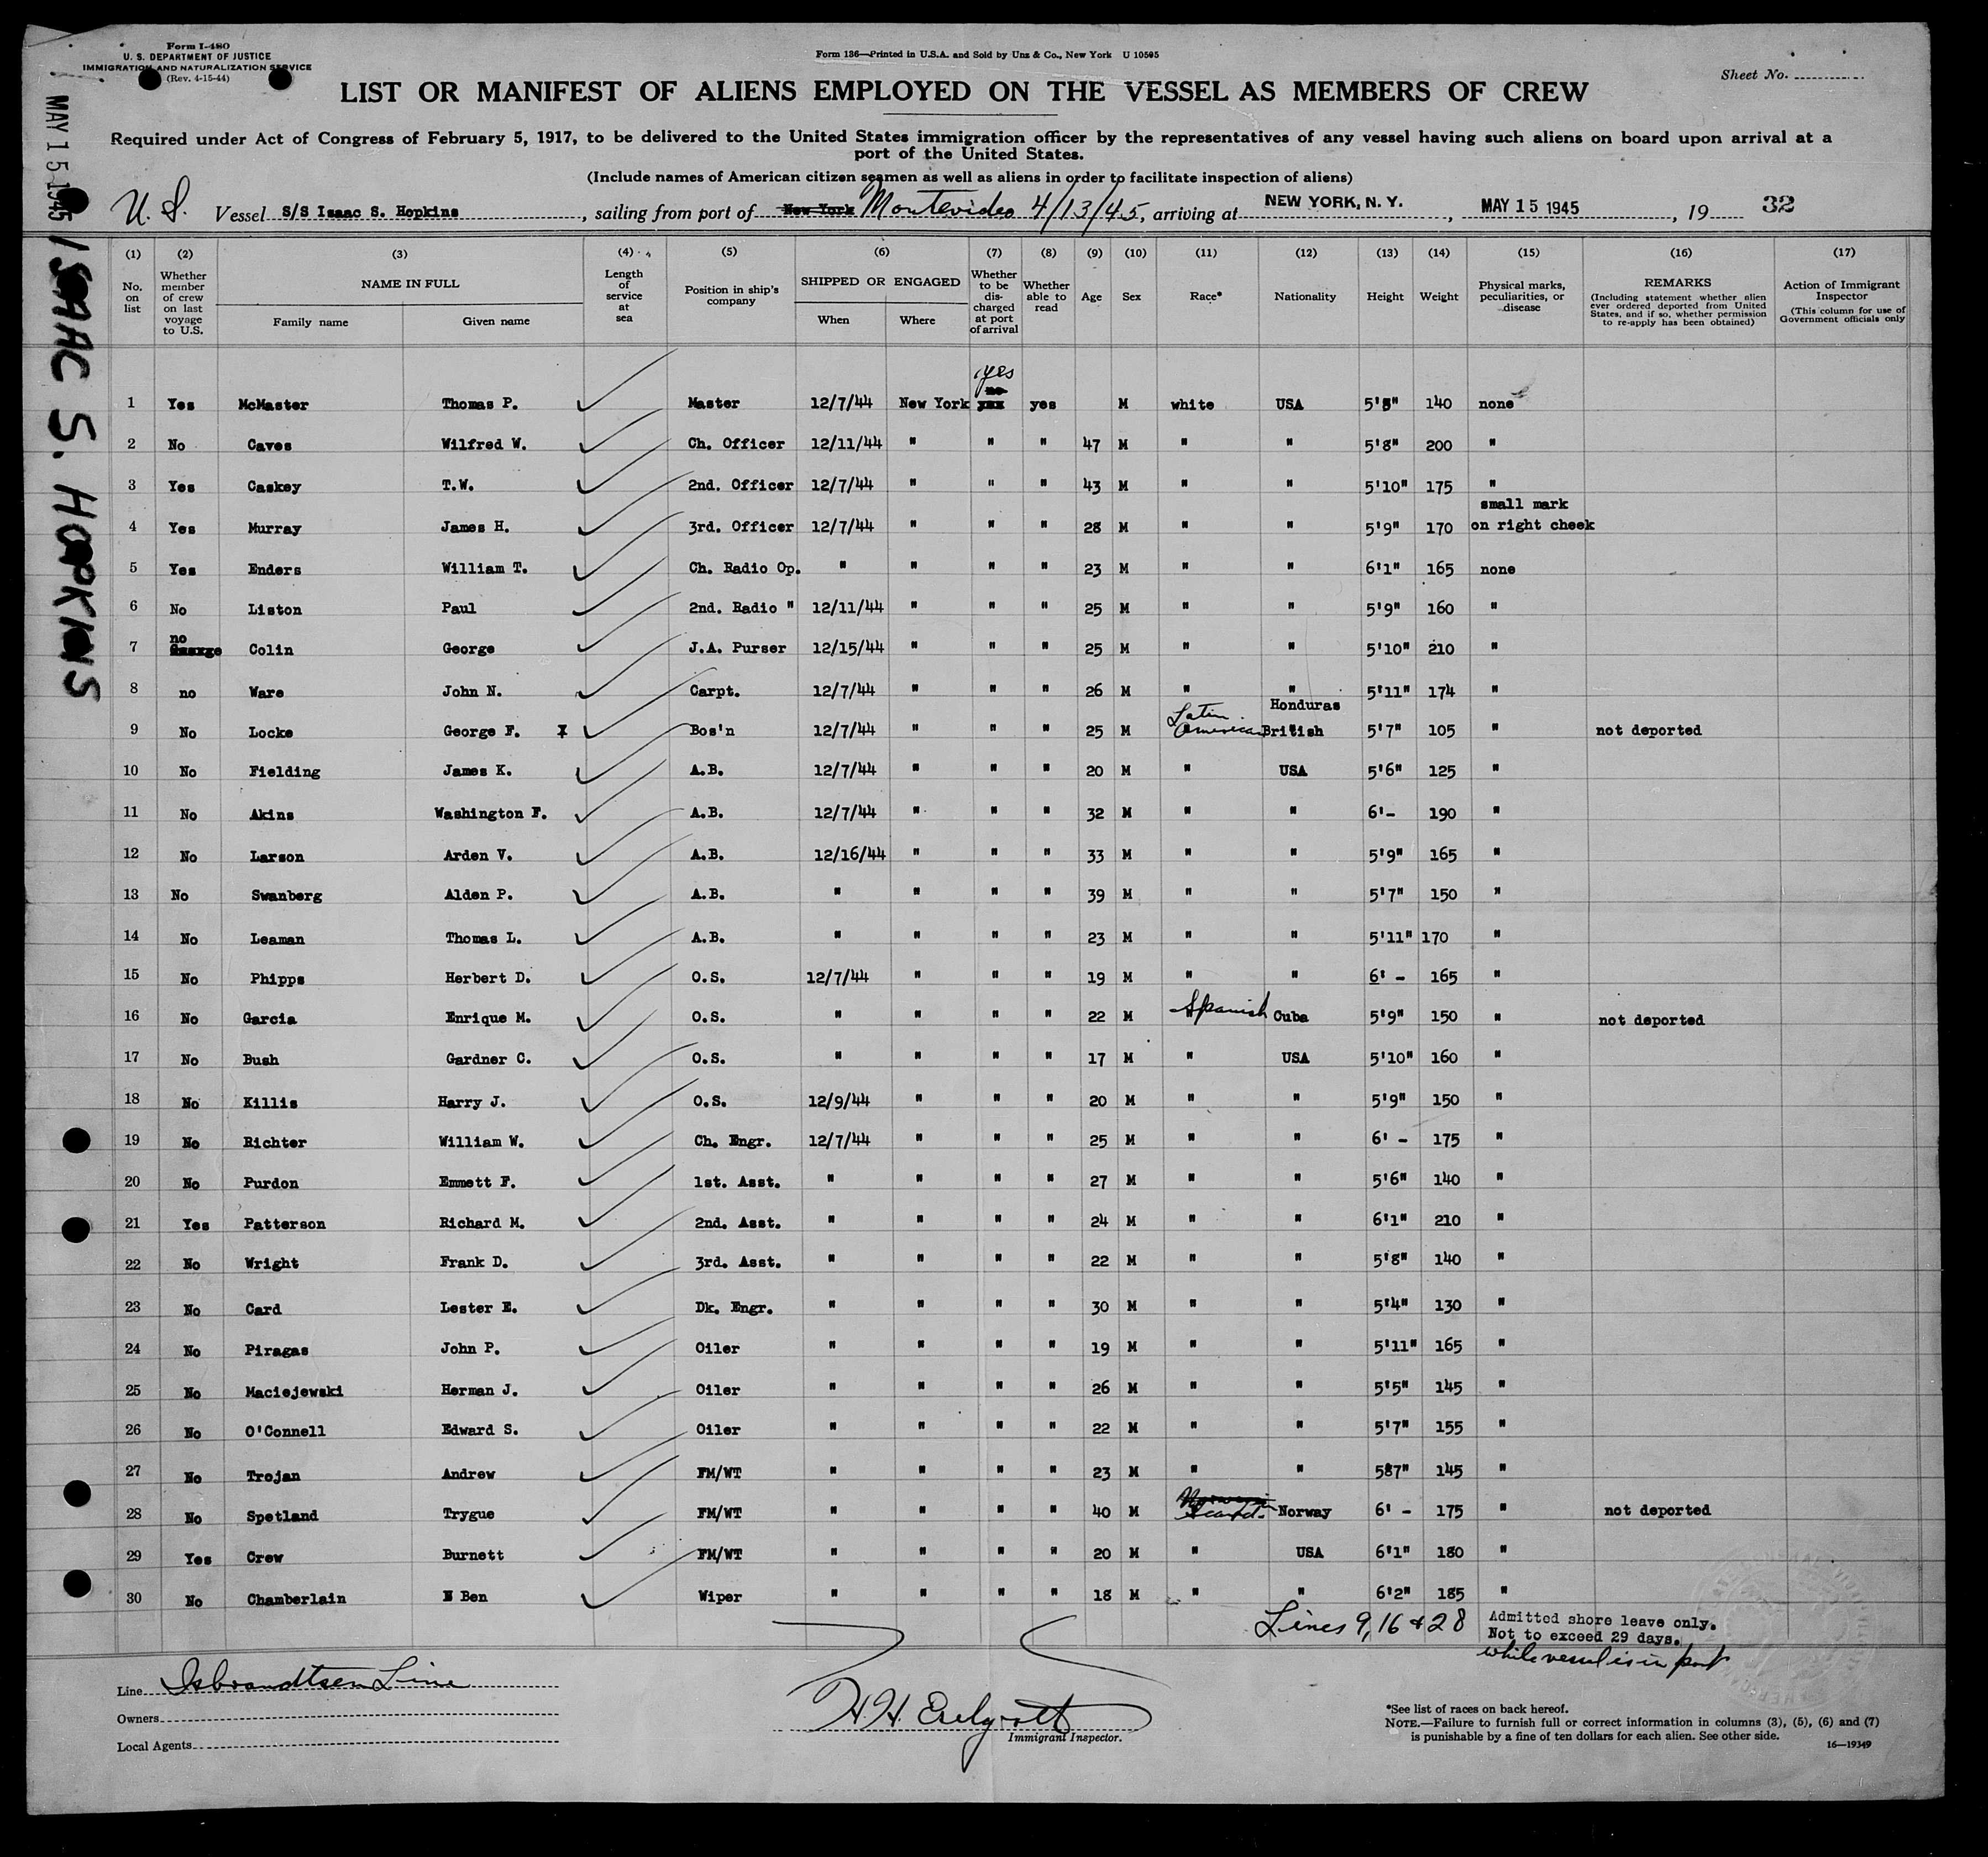 Form I-480
U. S. DEPARTMENT OF JUSTICE
IMMIGRATION AND NATURALIZATION SERVICE
(Rev. 4-15-44)
Form 136—Printed in U.S.A. and Sold by Unz & Co., New York U 10595
Sheet No.
LIST OR MANIFEST OF ALIENS EMPLOYED ON THE VESSEL AS MEMBERS OF CREW
Required under Act of Congress of February 5, 1917, to be delivered to the United States immigration officer by the representatives of any vessel having such aliens on board upon arrival at a
port of the United States.
(Include names of American citizen seamen as well as aliens in order to facilitate inspection of aliens)
U. S. Vessel S/S Isaac S. Hopkins, sailing from port of New York Montevideo 4/13/45, arriving at NEW YORK, N. Y., MAY 15 1945, 19 32
MAY 15 1945
ISAAC S. HOPKINS
(1) (2) (3) (4) (5) (6) (7) (8) (9) (10) (11) (12) (13) (14) (15) (16) (17)
No. on list
Whether member of crew on last voyage to U.S.
NAME IN FULL
Family name Given name
Length of service at sea
Position in ship's company
SHIPPED OR ENGAGED
When Where
Whether to be discharged at port of arrival
Whether able to read
Age
Sex
Race*
Nationality
Height
Weight
Physical marks, peculiarities, or disease
REMARKS
(Including statement whether alien ever ordered deported from United States, and if so, whether permission to re-apply has been obtained)
Action of Immigrant Inspector
(This column for use of Government officials only
yes
no
1 Yes McMaster Thomas P. Master 12/7/44 New York yes yes M white USA 5'8" 140 none
2 No Caves Wilfred W. Ch. Officer 12/11/44 " " " 47 M " " 5'8" 200 "
3 Yes Caskey T.W. 2nd. Officer 12/7/44 " " " 43 M " " 5'10" 175 "
small mark
4 Yes Murray James H. 3rd. Officer 12/7/44 " " " 28 M " " 5'9" 170 on right cheek
5 Yes Enders William T. Ch. Radio Op. " " " " 23 M " " 6'1" 165 none
6 No Liston Paul 2nd. Radio " 12/11/44 " " " 25 M " " 5'9" 160 "
7 no Colin George J.A. Purser 12/15/44 " " " 25 M " " 5'10" 210 "
8 no Ware John N. Carpt. 12/7/44 " " " 26 M " " 5'11" 174 "
Honduras
9 No Locke George F. X Bos'n 12/7/44 " " " 25 M Latin American British 5'7" 105 " not deported
10 No Fielding James K. A.B. 12/7/44 " " " 20 M " USA 5'6" 125 "
11 No Akins Washington F. A.B. 12/7/44 " " " 32 M " " 6'- 190 "
12 No Larson Arden V. A.B. 12/16/44 " " " 33 M " " 5'9" 165 "
13 No Swanberg Alden P. A.B. " " " " 39 M " " 5'7" 150 "
14 No Leaman Thomas L. A.B. " " " " 23 M " " 5'11" 170 "
15 No Phipps Herbert D. O.S. 12/7/44 " " " 19 M " " 6' - 165 "
16 No Garcia Enrique M. O.S. " " " " 22 M Spanish Cuba 5'9" 150 " not deported
17 No Bush Gardner C. O.S. " " " " 17 M " USA 5'10" 160 "
18 No Killis Harry J. O.S. 12/9/44 " " " 20 M " " 5'9" 150 "
19 No Richter William W. Ch. Engr. 12/7/44 " " " 25 M " " 6' - 175 "
20 No Purdon Emmett F. 1st. Asst. " " " " 27 M " " 5'6" 140 "
21 Yes Patterson Richard M. 2nd. Asst. " " " " 24 M " " 6'1" 210 "
22 No Wright Frank D. 3rd. Asst. " " " " 22 M " " 5'8" 140 "
23 No Card Lester E. Dk. Engr. " " " " 30 M " " 5'4" 130 "
24 No Piragas John P. Oiler " " " " 19 M " " 5'11" 165 "
25 No Maciejewski Herman J. Oiler " " " " 26 M " " 5'5" 145 "
26 No O'Connell Edward S. Oiler " " " " 22 M " " 5'7" 155 "
27 No Trojan Andrew FM/WT " " " " 23 M " " 587" 145 "
28 No Spetland Trygue FM/WT " " " " 40 M Scand. Norway 6' - 175 " not deported
29 Yes Crew Burnett FM/WT " " " " 20 M " USA 6'1" 180 "
30 No Chamberlain Ben Wiper " " " " 18 M " " 6'2" 185 "
Lines 9, 16 & 28 Admitted shore leave only.
Not to exceed 29 days.
while vessel is in port
Line Isbrandtsen Line
Owners
Local Agents
H.H.
Immigrant Inspector.
*See list of races on back hereof.
NOTE.—Failure to furnish full or correct information in columns (3), (5), (6) and (7)
is punishable by a fine of ten dollars for each alien. See other side.
16—19349